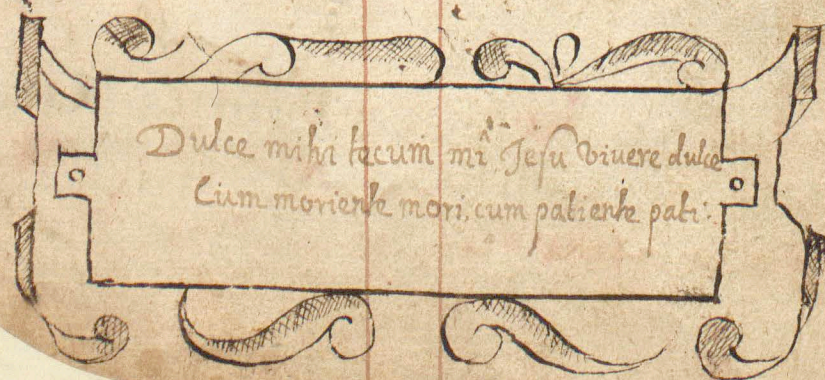 Dulce mihi tecum mi Jesu vivere dulce
Cum moriente mori, cum patiente pati: